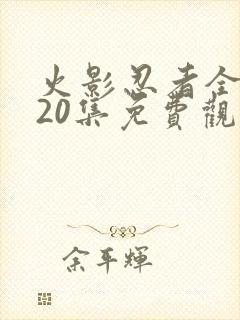 火影忍者全
20集免費觀
余平輝